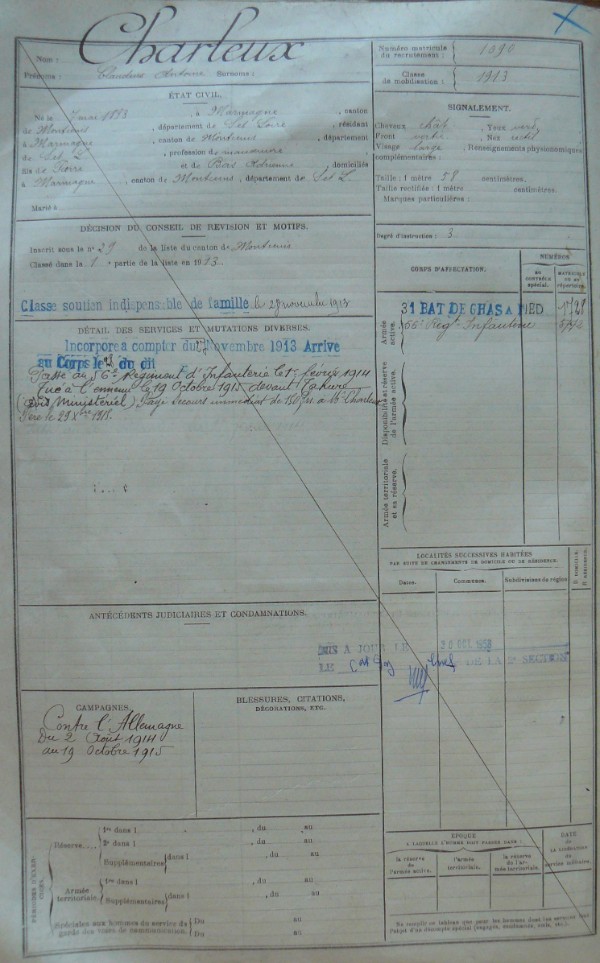 Nom : Charleux
Prénoms : Claudius Antoine Surnoms :
ÉTAT CIVIL.
Né le 7 mai 1893, à Marmagne, canton
de Montcenis, département de Set Loire, résidant
à Marmagne, canton de Montcenis, département
de Set L., profession de manœuvre
fils de Pierre et de Bois, domiciliés
à Marmagne, canton de Montcenis, département de Set L.
Marié à
DÉCISION DU CONSEIL DE RÉVISION ET MOTIFS.
Inscrit sous le n° 29 de la liste du canton de Montcenis
Classé dans la 1 partie de la liste en 1913.
Classe soutien indispensable de famille le novembre 1913
DÉTAIL DES SERVICES ET MUTATIONS DIVERSES.
Incorporé à compter du Novembre 1913 Arrivé
au Corps le dit
Passé au 56e Régiment d'Infanterie le 1er février 1914
Tué à l'ennemi le 19 Octobre 1915 devant Tahure
(Avis Ministériel) Payé secours immédiat de 150 frs à Mr Charleux
Père le 29 Xbre 1915.
ANTÉCÉDENTS JUDICIAIRES ET CONDAMNATIONS.
CAMPAGNES.
Contre l'Allemagne
Du 2 Août 1914
au 19 Octobre 1915
BLESSURES, CITATIONS,
DÉCORATIONS, ETC.
PÉRIODES D'EXERCICES.
Réserve
1re dans l , du au
2e dans l , du au
Supplémentaires dans l , du au
Armée territoriale.
1re dans l , du au
Supplémentaires dans l , du au
Spéciales aux hommes du service de Du au
garde des voies de communication. Du au
Numéro matricule du recrutement : 1090
Classe de mobilisation : 1913
SIGNALEMENT.
Cheveux chât Yeux verts
Front Nez
Visage large, Renseignements physionomiques
complémentaires :
Taille : 1 mètre 58 centimètres.
Taille rectifiée : 1 mètre centimètres.
Marques particulières :
Degré d'instruction : 3
CORPS D'AFFECTATION.
NUMÉROS
au contrôle spécial.
matricule ou au répertoire.
Armée active.
31 BAT DE CHAS A PIED 1728
56e Régt Infanterie
Disponibilité et réserve de l'armée active.
Armée territoriale et sa réserve.
LOCALITÉS SUCCESSIVES HABITÉES
PAR SUITE DE CHANGEMENTS DE DOMICILE OU DE RÉSIDENCE.
Dates. Communes. Subdivisions de région
D. domicile. R. résidence.
MIS A JOUR LE 20 OCT. 1950
LE DE LA SECTION
ÉPOQUE
À LAQUELLE L'HOMME DOIT PASSER DANS :
la réserve de l'armée active.
l'armée territoriale.
la réserve de l'armée territoriale.
DATE
de la libération du service militaire.
Ne remplir ce tableau que pour les hommes dont les services font
l'objet d'un décompte spécial